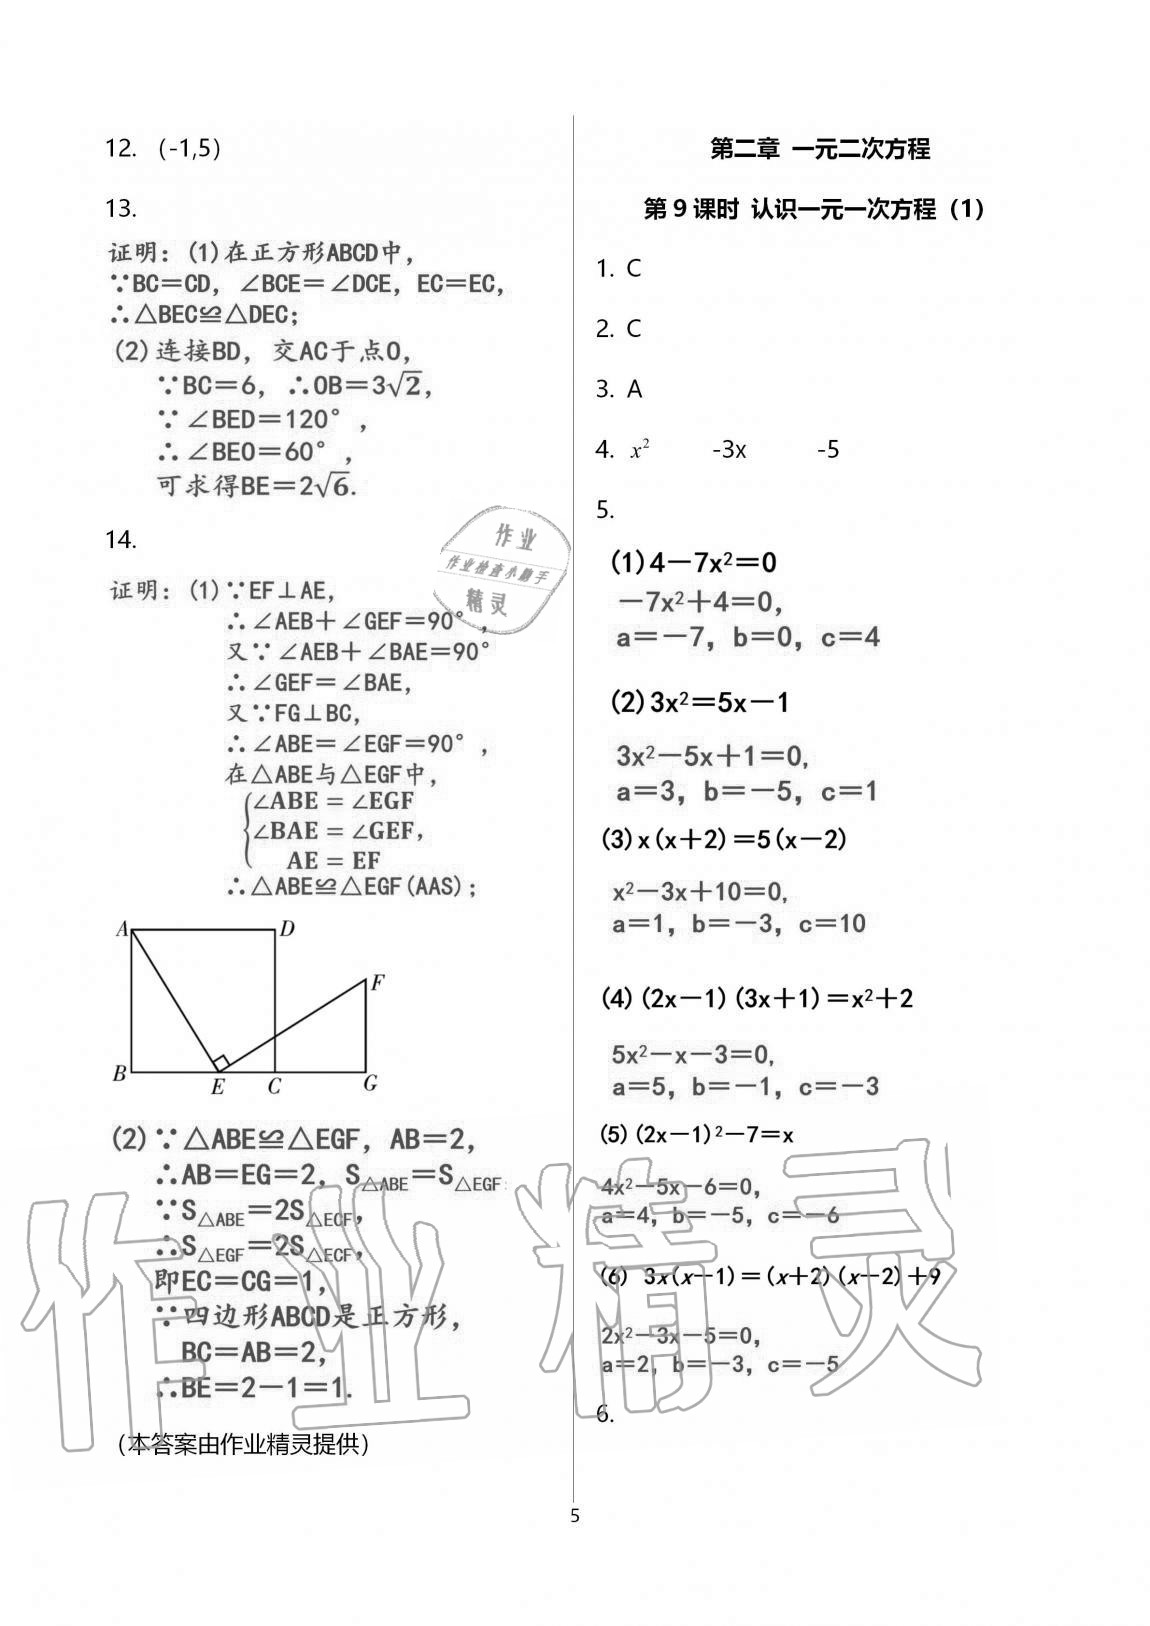 12. （-1,5）
13.
证明：(1)在正方形ABCD中，
∵BC＝CD，∠BCE＝∠DCE，EC＝EC，
∴△BEC≌△DEC；
(2)连接BD，交AC于点O，
∵BC＝6，∴OB＝3√2，
∵∠BED＝120°，
∴∠BEO＝60°，
可求得BE＝2√6.
14.
证明：(1)∵EF⊥AE，
∴∠AEB＋∠GEF＝90°，
又∵∠AEB＋∠BAE＝90°
∴∠GEF＝∠BAE，
又∵FG⊥BC，
∴∠ABE＝∠EGF＝90°，
在△ABE与△EGF中，
∠ABE = ∠EGF
∠BAE = ∠GEF，
AE = EF
∴△ABE≌△EGF(AAS)；
A D
F
B E C G
(2)∵△ABE≌△EGF，AB＝2，
∴AB＝EG＝2，S△ABE＝S△EGF，
∵S△ABE＝2S△ECF，
∴S△EGF＝2S△ECF，
即EC＝CG＝1，
∵四边形ABCD是正方形，
BC＝AB＝2，
∴BE＝2－1＝1.
（本答案由作业精灵提供）
第二章 一元二次方程
第 9 课时 认识一元一次方程（1）
1. C
2. C
3. A
4. x² -3x -5
5.
(1)4－7x²＝0
－7x²＋4＝0，
a＝－7，b＝0，c＝4
(2)3x²＝5x－1
3x²－5x＋1＝0，
a＝3，b＝－5，c＝1
(3)x(x＋2)＝5(x－2)
x²－3x＋10＝0，
a＝1，b＝－3，c＝10
(4)(2x－1)(3x＋1)＝x²＋2
5x²－x－3＝0，
a＝5，b＝－1，c＝－3
(5)(2x－1)²－7＝x
4x²－5x－6＝0，
a＝4，b＝－5，c＝－6
(6) 3x(x－1)＝(x＋2)(x－2)＋9
2x²－3x－5＝0，
a＝2，b＝－3，c＝－5
6.
5
作业
作业检查小助手
精灵
作业精灵